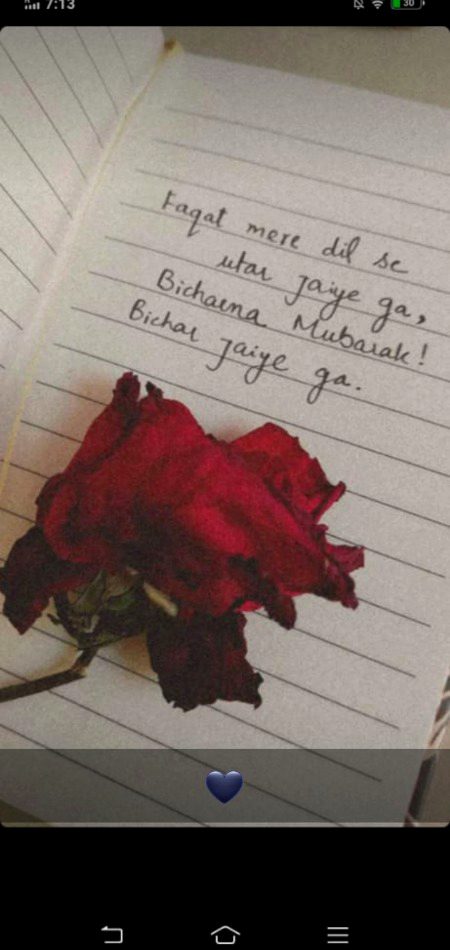 7:13
30
Faqat mere dil se
utar jaiye ga,
Bicharna Mubarak!
Bichar jaiye ga.